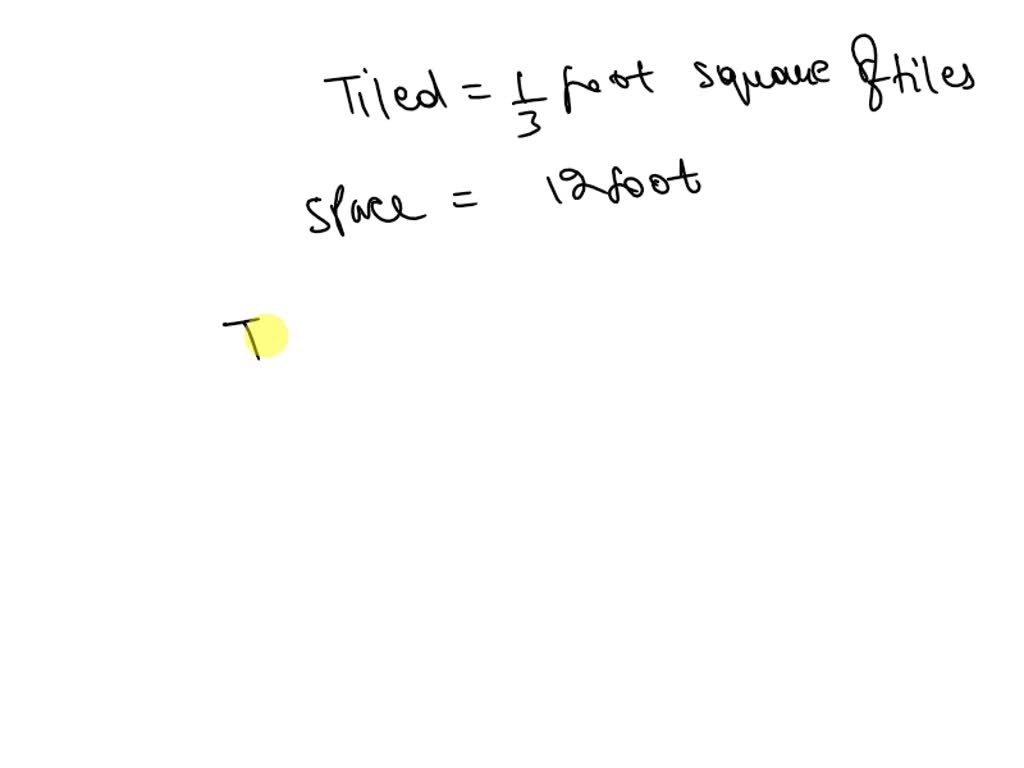 Tiled = 1/3 foot square of tiles
space = 12 foot
T